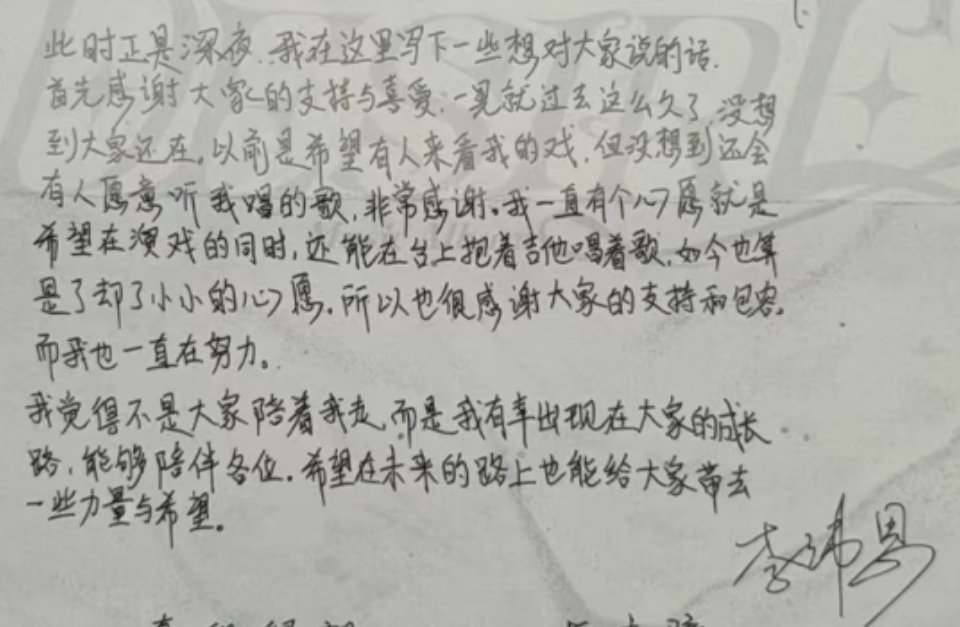 此时正是深夜,我在这里写下一些想对大家说的话.
首先感谢大家的支持与喜爱,一晃就过去这么久了,没想
到大家还在。以前是希望有人来看我的戏,但没想到还会
有人愿意听我唱的歌,非常感谢。我一直有个心愿就是
希望在演戏的同时,还能在台上抱着吉他唱着歌,如今也算
是了却了小小的心愿。所以也很感谢大家的支持和包容。
而我也一直在努力。
我觉得不是大家陪着我走,而是我有幸出现在大家的成长
路,能够陪伴各位。希望在未来的路上也能给大家带去
一些力量与希望。